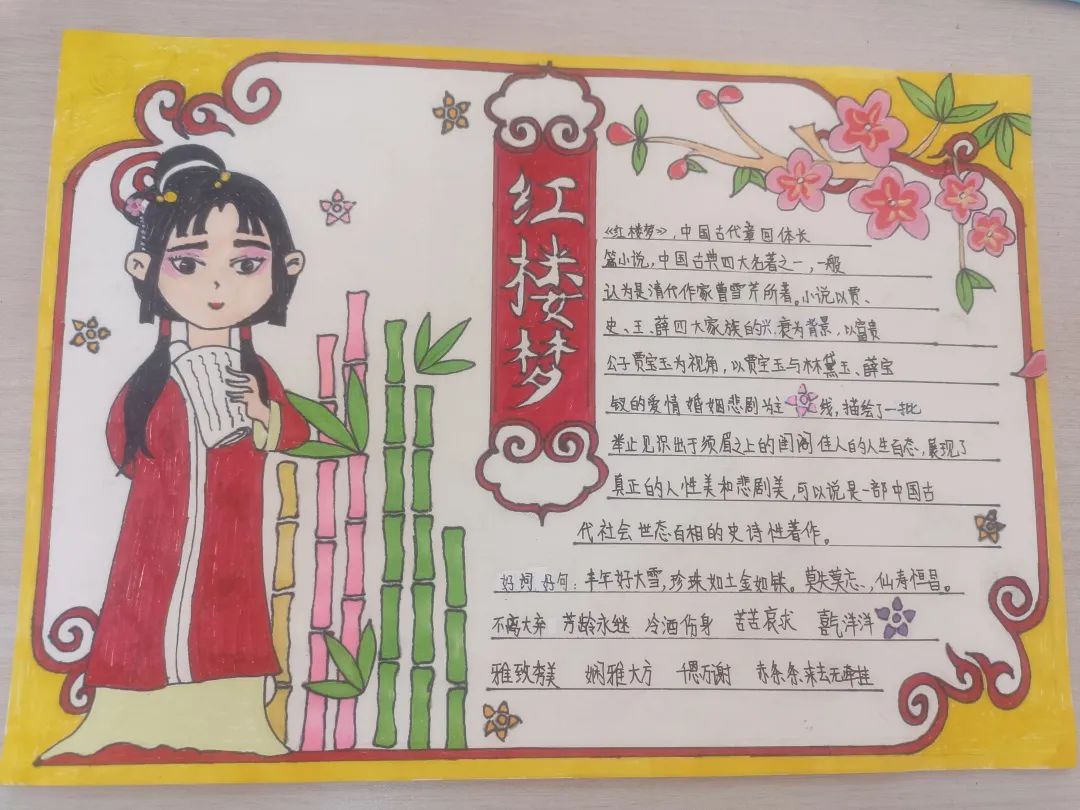 红楼梦
《红楼梦》,中国古代章回体长
篇小说,中国古典四大名著之一,一般
认为是清代作家曹雪芹所著。小说以贾、
史、王、薛四大家族的兴衰为背景,以富贵
公子贾宝玉为视角,以贾宝玉与林黛玉、薛宝
钗的爱情婚姻悲剧为主线,描绘了一批
举止见识出于须眉之上的闺阁佳人的人生百态,展现了
真正的人性美和悲剧美,可以说是一部中国古
代社会世态百相的史诗性著作。
好词好句:丰年好大雪,珍珠如土金如铁。莫失莫忘、,仙寿恒昌。
不离大弃 芳龄永继 冷酒伤身 苦苦哀求 喜气洋洋
雅致秀美 娴雅大方 千恩万谢 赤条条来去无牵挂